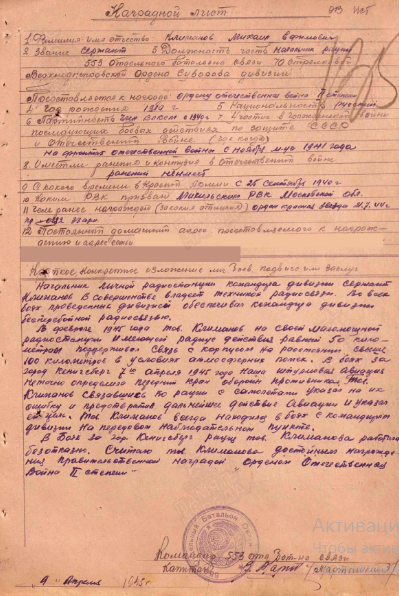 Наградной лист
1. Фамилия имя отчество Климанов Михаил Ефимович
2. Звание Сержант 3 Должность часть начальник радио
553 Отдельного батальона связи 70 стрелковой
Верхнеднепровской Ордена Суворова дивизии
Представляется к награде ордену отечественная война II степени
4. Год рождения 1919 г 5 Национальность русский
6 Партийность член ВЛКСМ с 1940 г. 7. Участие в
последующих боевых действиях по защите СССР
и Отечественной войне (где когда)
на фронтах отечественной войны с 1941 года
8. Имеет ли ранения и контузии в отечественной войне
ранений не имеет
9 С какого времени в Красной Армии с 25 сентября 1940 г.
10 Каким РВК призван РВК Московской обл.
11 Чем ранее награжден (за какие отличия) орден красная звезда
12. Постоянный домашний адрес представляемого к награж-
дению и адрес семьи
Краткое, конкретное изложение личных боевых подвигов или заслуг
Начальник личной радиостанции командира дивизии Сержант
Климанов в совершенстве владеет техникой радиосвязи. Во всех
боях проведенных дивизией обеспечивал командира дивизии
бесперебойной радиосвязью.
В феврале 1945 года тов. Климанов на своей маломощной
радиостанции имеющей радиус действия равный 50 кило-
метров поддерживал связь с корпусом на расстоянии свыше
100 километров в условиях атмосферных помех. В боях за
город Кенигсберг 7го апреля 1945 года наша штурмовая авиация
неточно определила передний край обороны противника, тов.
Климанов связавшись по рации с самолетами указал на их
ошибку и предотвратил дальнейшие действия авиации и указал
цели. Тов. Климанов всегда находился в боях с командиром
дивизии на передовом наблюдательном пункте.
В боях за гор Кенигсберг рация тов. Климанова работала
безотказно. Считаю тов. Климанова достойным награжде-
ния Правительственной наградой "Орденом Отечественная
Война II степени"
Командир 553 отд Бат-на связи
Капитан
9 Апреля 1945 г.
Активаци
Чтобы актив